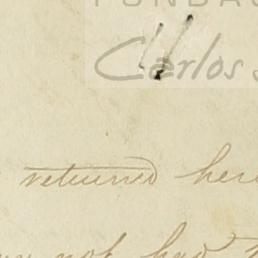 FUNDAC
Carlos
returned her
not had